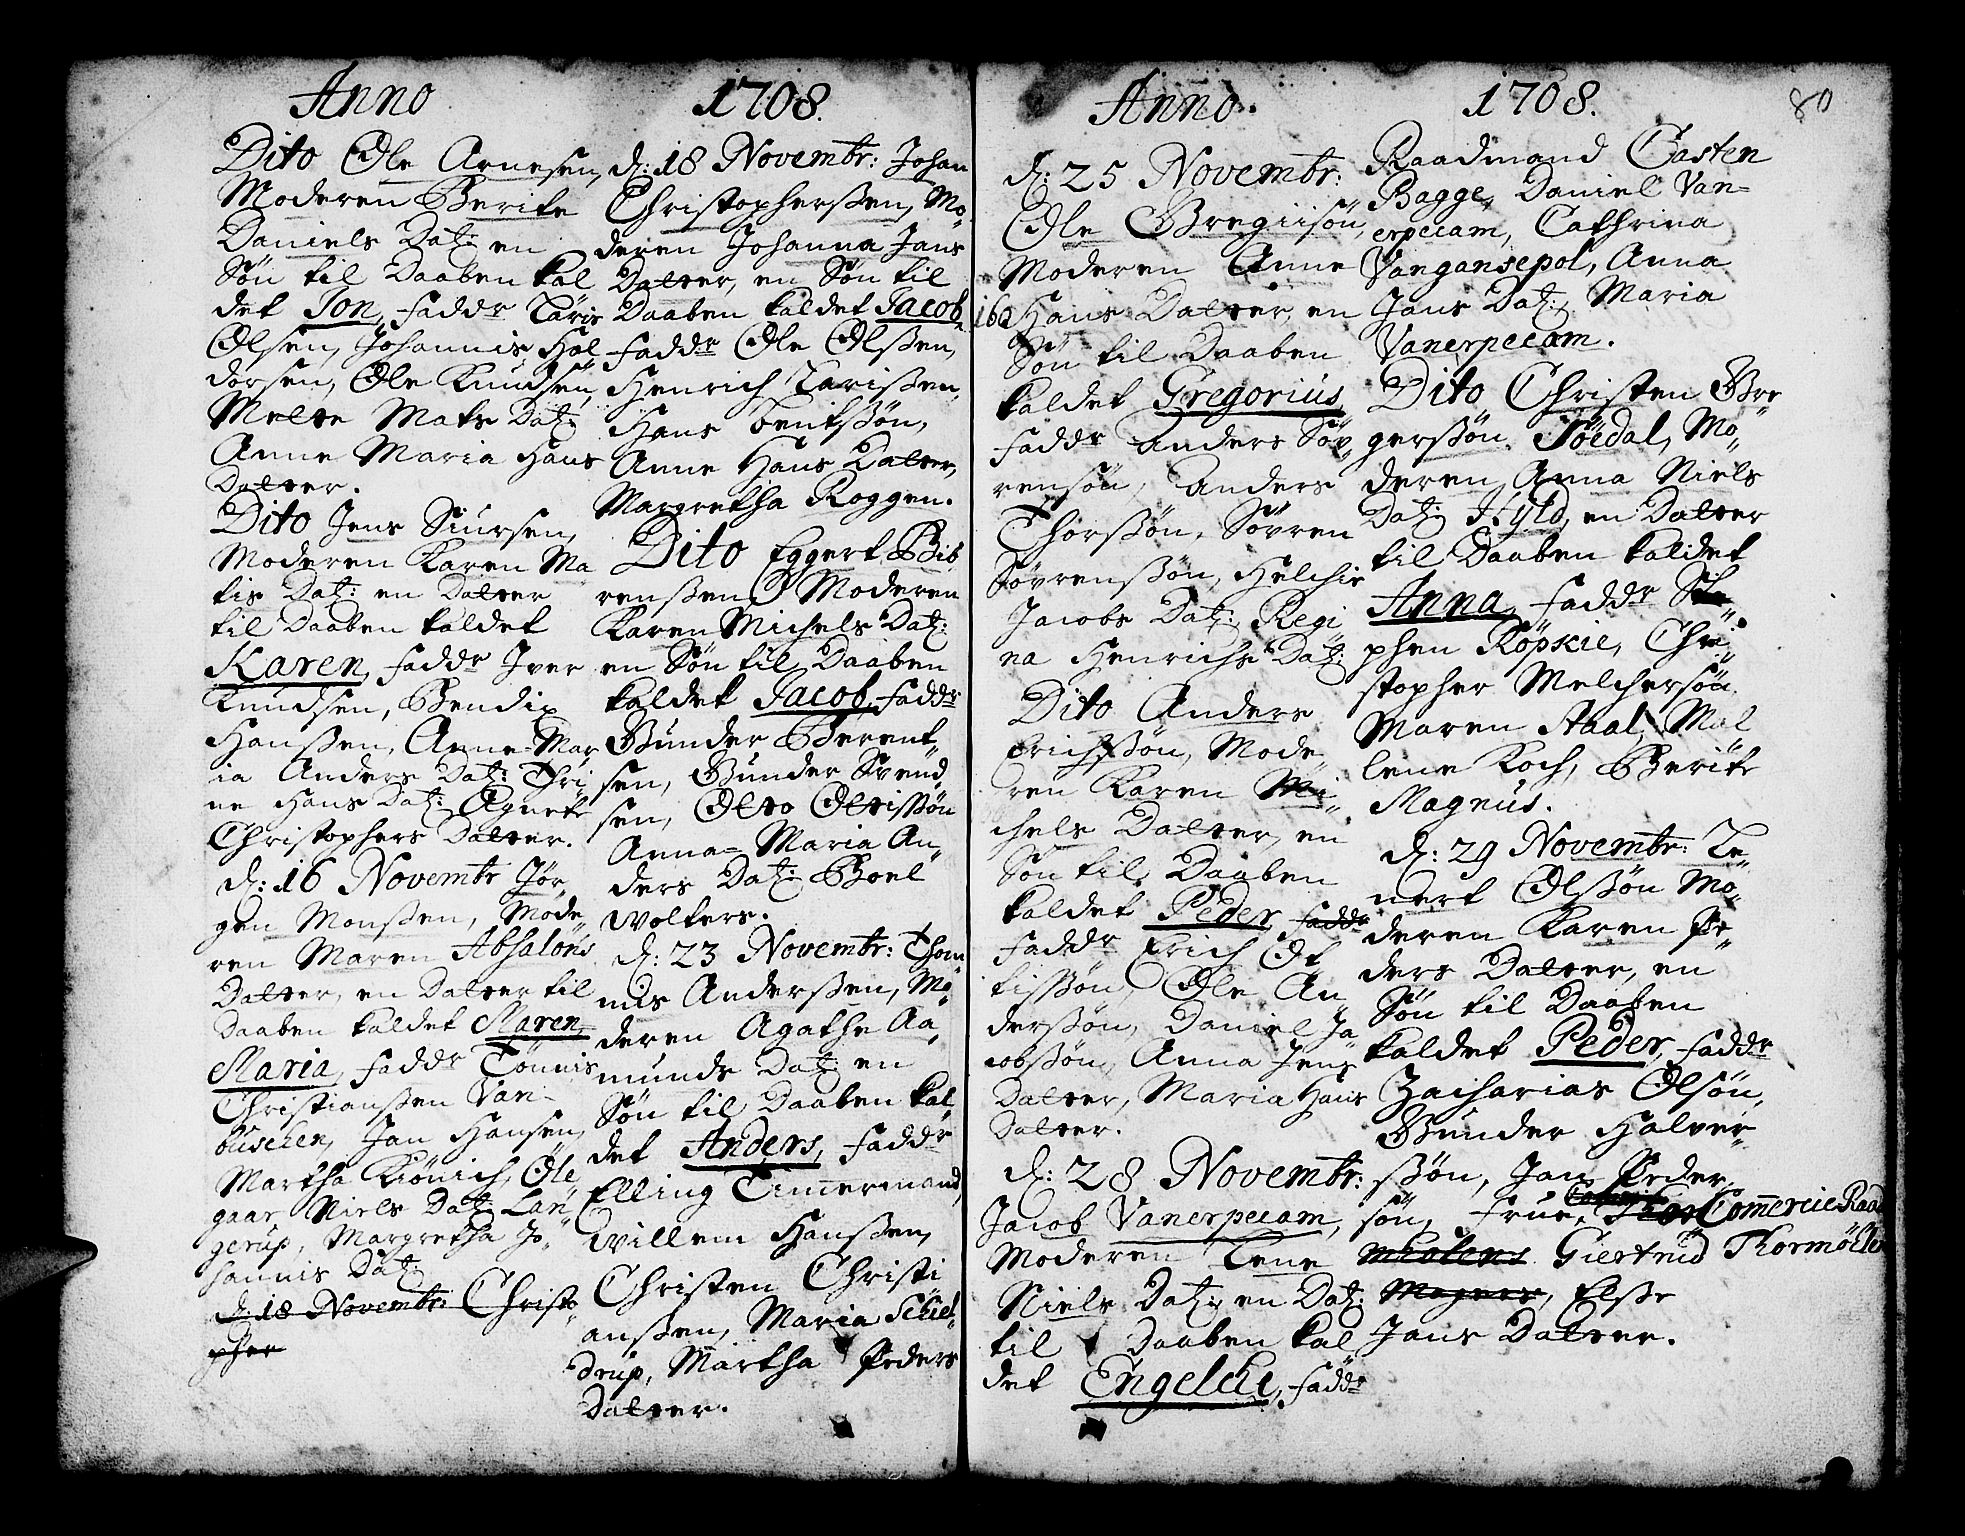 Anno 1708.
Dito Ole Arnesen,
Moderen Berite
Daniels Dat: en
Søn til Daaben kal
det Jon, faddr Lâris
Olsen, Johannis Hal
dorsen, Ole Knudsen,
Mette Mats Dat:
Anne Maria Hans
Datter.
Dito Jens Siursen,
Moderen Karen Ma
tis Dat: en Datter
til Daaben kaldet
Karen, faddr Iver
Knudsen, Bendix
Hanssen, Anne Mar
ia Anders Dat: Thri
ne Hans Dat: Agnete
Christophers Datter.
d: 16 Novembr Jør„
gen Monssen, Mode„
ren Maren Absalons
Datter, en Datter til
Daaben kaldet Maren
Maria, faddr Tönnis
Christianssen Van-
büschen, Jan Hansen,
Martha Kiönich, Öle
gaar Niels Dat: Lan„
gerup, Margretha Jo„
hannis Dat:
d: 18 Novembr: Christo„
pher
d: 18 Novembr: Johan
Christopherssen, Mo„
deren Johanna Jans
Datter, en Søn til
Daaben kaldet Jacob,
faddr Ole Olssen,
Henrich Larissen,
Hans bentssøn,
Anne Hans Datter,
Margretha Roggen.
Dito Eggert Bib
renssen, Moderen
Karen Michels Dat:
en Søn til Daaben
kaldet Jacob, faddr
Gunder Berent„
sen, Gunder Svend„
sen, Otto Ottissøn
Anna Maria An„
ders Dat: Boel
Wolters.
d: 23 Novembr: Thom„
mis Anderssen, Mo„
deren Agathe Aa„
munds Dat: en
Søn til Daaben kal
det Anders, faddr
Elling Timmermand,
Willem Hanssen,
Christen Christi
anssen, Maria Schiel„
drup, Martha Peders
Datter.
Anno 1708. 80
d: 25 Novembr:
Ole Gregiisøn,
Moderen Anne
160 Hans Datter, en
Søn til Daaben
kaldet Gregorius,
faddr Anders Söv„
rensøn, Anders
Thorssøn, Sövren
Sövrenssøn, Helchie
Jacobs Dat: Regi
na Henrichs Dat:
Dito Anders
Erichssøn, Mode„
ren Karen Mi„
chels Datter, en
Søn til Daaben
kaldet Peder, faddr
faddr Erich Ot
tissøn, Ole An„
derssøn, Daniel Ja
cobssøn, Anna Jens
Datter, Maria Hans
Datter.
d: 28 Novembr:
Jacob Vanerpecam,
Moderen Lene
Niels Dat: en Dat:
til Daaben kal
det Engelche, faddr
Raadmand Casten
Bagge, Daniel Van=
erpecam, Cathrina
Vangansepol, Anna
Jans Dat: Maria
Vanerpecam.
Dito Christen Gre
gerssøn Töedal, Mo„
deren Anna Niels
Dat: Hyld, en Datter
til Daaben kaldet
Anna, faddr Ste„
phen Röpkie, Chri„
stopher Melchersøn
Maren Staal, Mal
lene Koch, Berite
Magnus.
d: 29 Novembr: Le„
nert Olssøn Mo„
deren Karen Pe„
ders Datter, en
Søn til Daaben
kaldet Peder, faddr
Zacharias Olsøn,
Gunder Halver„
ssøn, Jan Peder„
søn, Frue, Comercie Raad
Giertrud Thormöhlen
Magers, Elsse
Jans Datter.